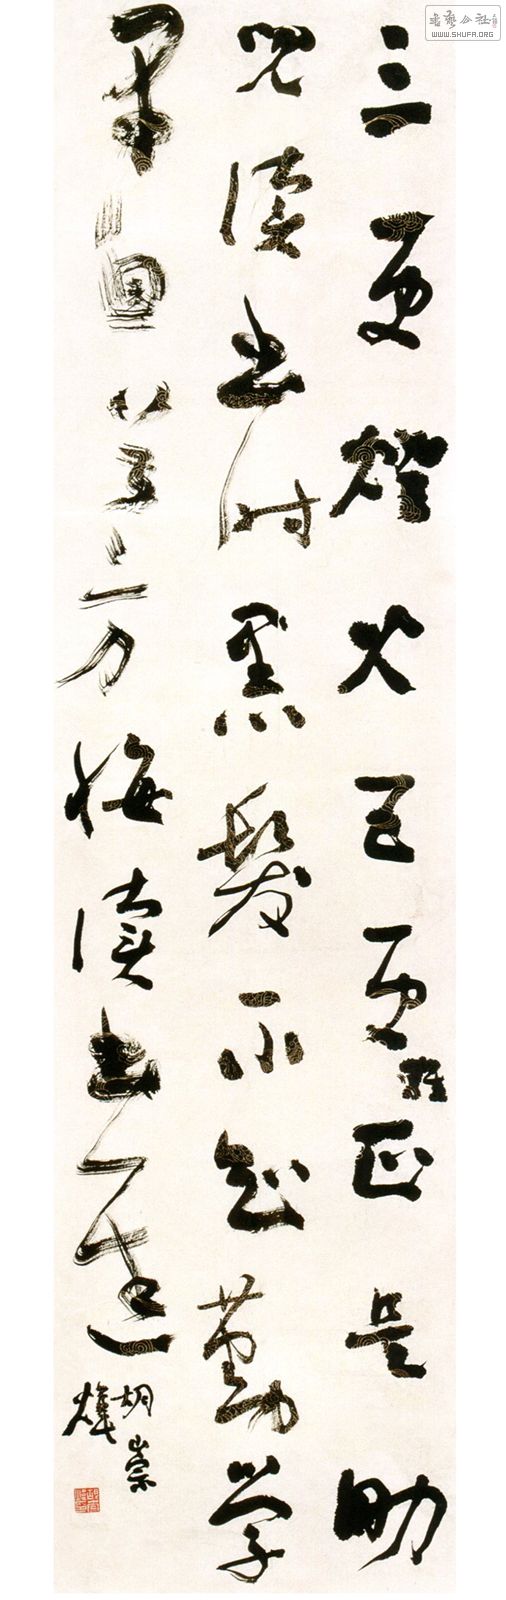 書藝公社
WWW.SHUFA.ORG
三更燈火五更雞正是男
兒讀書時黑髮不知勤学
早白首方悔讀書遲
胡崇
煒